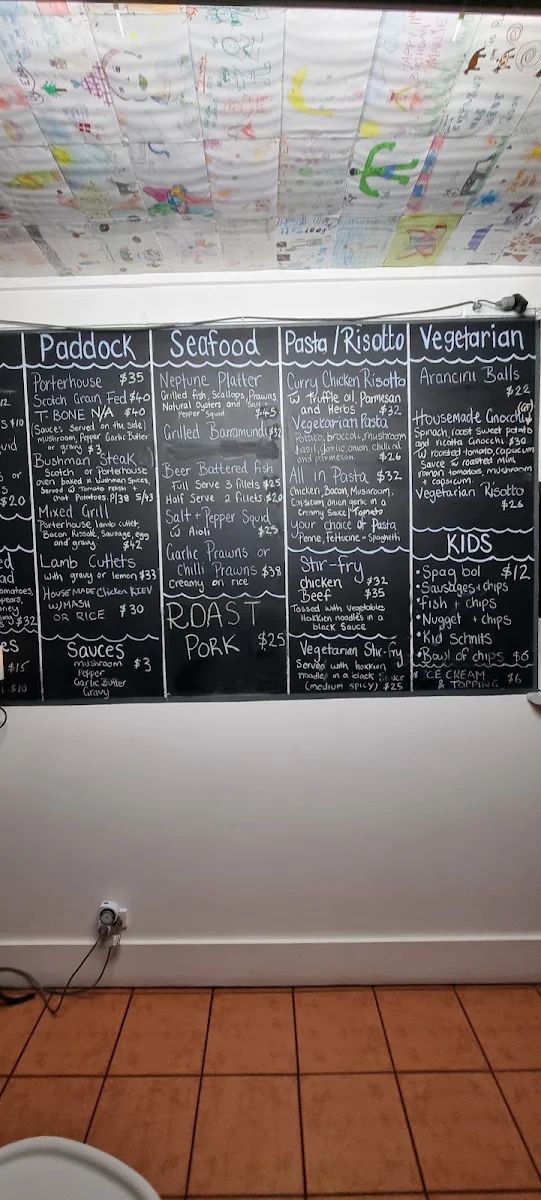 Paddock
Porterhouse $35
Scotch Grain Fed $40
T-BONE N/A $40
(Sauces Served on the side)
mushroom, Pepper Garlic Butter
or gravy $3
Bushman Steak
Scotch or Porterhouse
oven baked in Bushman Spices,
Served w Tomato relish +
roast Potatoes, P/38 S/43
Mixed Grill
Porterhouse, lamb cutlet,
Bacon Rissole, Sausage, egg
and gravy $42
Lamb Cutlets
with gravy or lemon $33
HOUSEMADE Chicken KIEV
W/MASH
OR RICE $30
Sauces
mushroom $3
Pepper
Garlic Butter
Gravy
Seafood
Neptune Platter
Grilled fish, Scallops, Prawns
Natural Oysters and Salt +
Pepper Squid $45
Grilled Barramundi $32
Beer Battered fish
Full Serve 3 fillets $25
Half Serve 2 fillets $20
Salt + Pepper Squid
w Aioli $25
Garlic Prawns or
Chilli Prawns $38
Creamy on rice
ROAST
PORK $25
Pasta/Risotto
Curry Chicken Risotto
w Truffle oil, Parmesan
and Herbs $32
Vegetarian Pasta
Potato, broccoli, mushroom
basil, garlic, onion, chilli, oil
and parmesan $26
All in Pasta $32
Chicken, Bacon, Mushroom,
Capsicum onion garlic in a
Creamy Sauce/Tomato
your choice of Pasta
Penne, Fettucine + Spaghetti
Stir-fry
chicken $32
Beef $35
Tossed with Vegetables
Hokkien noodles in a
black Sauce
Vegetarian Stir-fry
Served with hokkien
noodles in a black Sauce
(medium spicy) $25
Vegetarian
Arancini Balls
$22
Housemade Gnocchi (GF)
Spinach, roast Sweet potato
and ricotta Gnocchi $30
w roasted tomato, capsicum
Sauce w roasted mini
roman tomatoes, mushroom
+ capsicum.
Vegetarian Risotto
$26
KIDS
•Spag bol $12
•Sausages + chips
•Fish + chips
•Nugget + chips
•Kid Schnits
•Bowl of chips $6
ICE CREAM $6
& TOPPING
$10
$20
$32
$15
$10